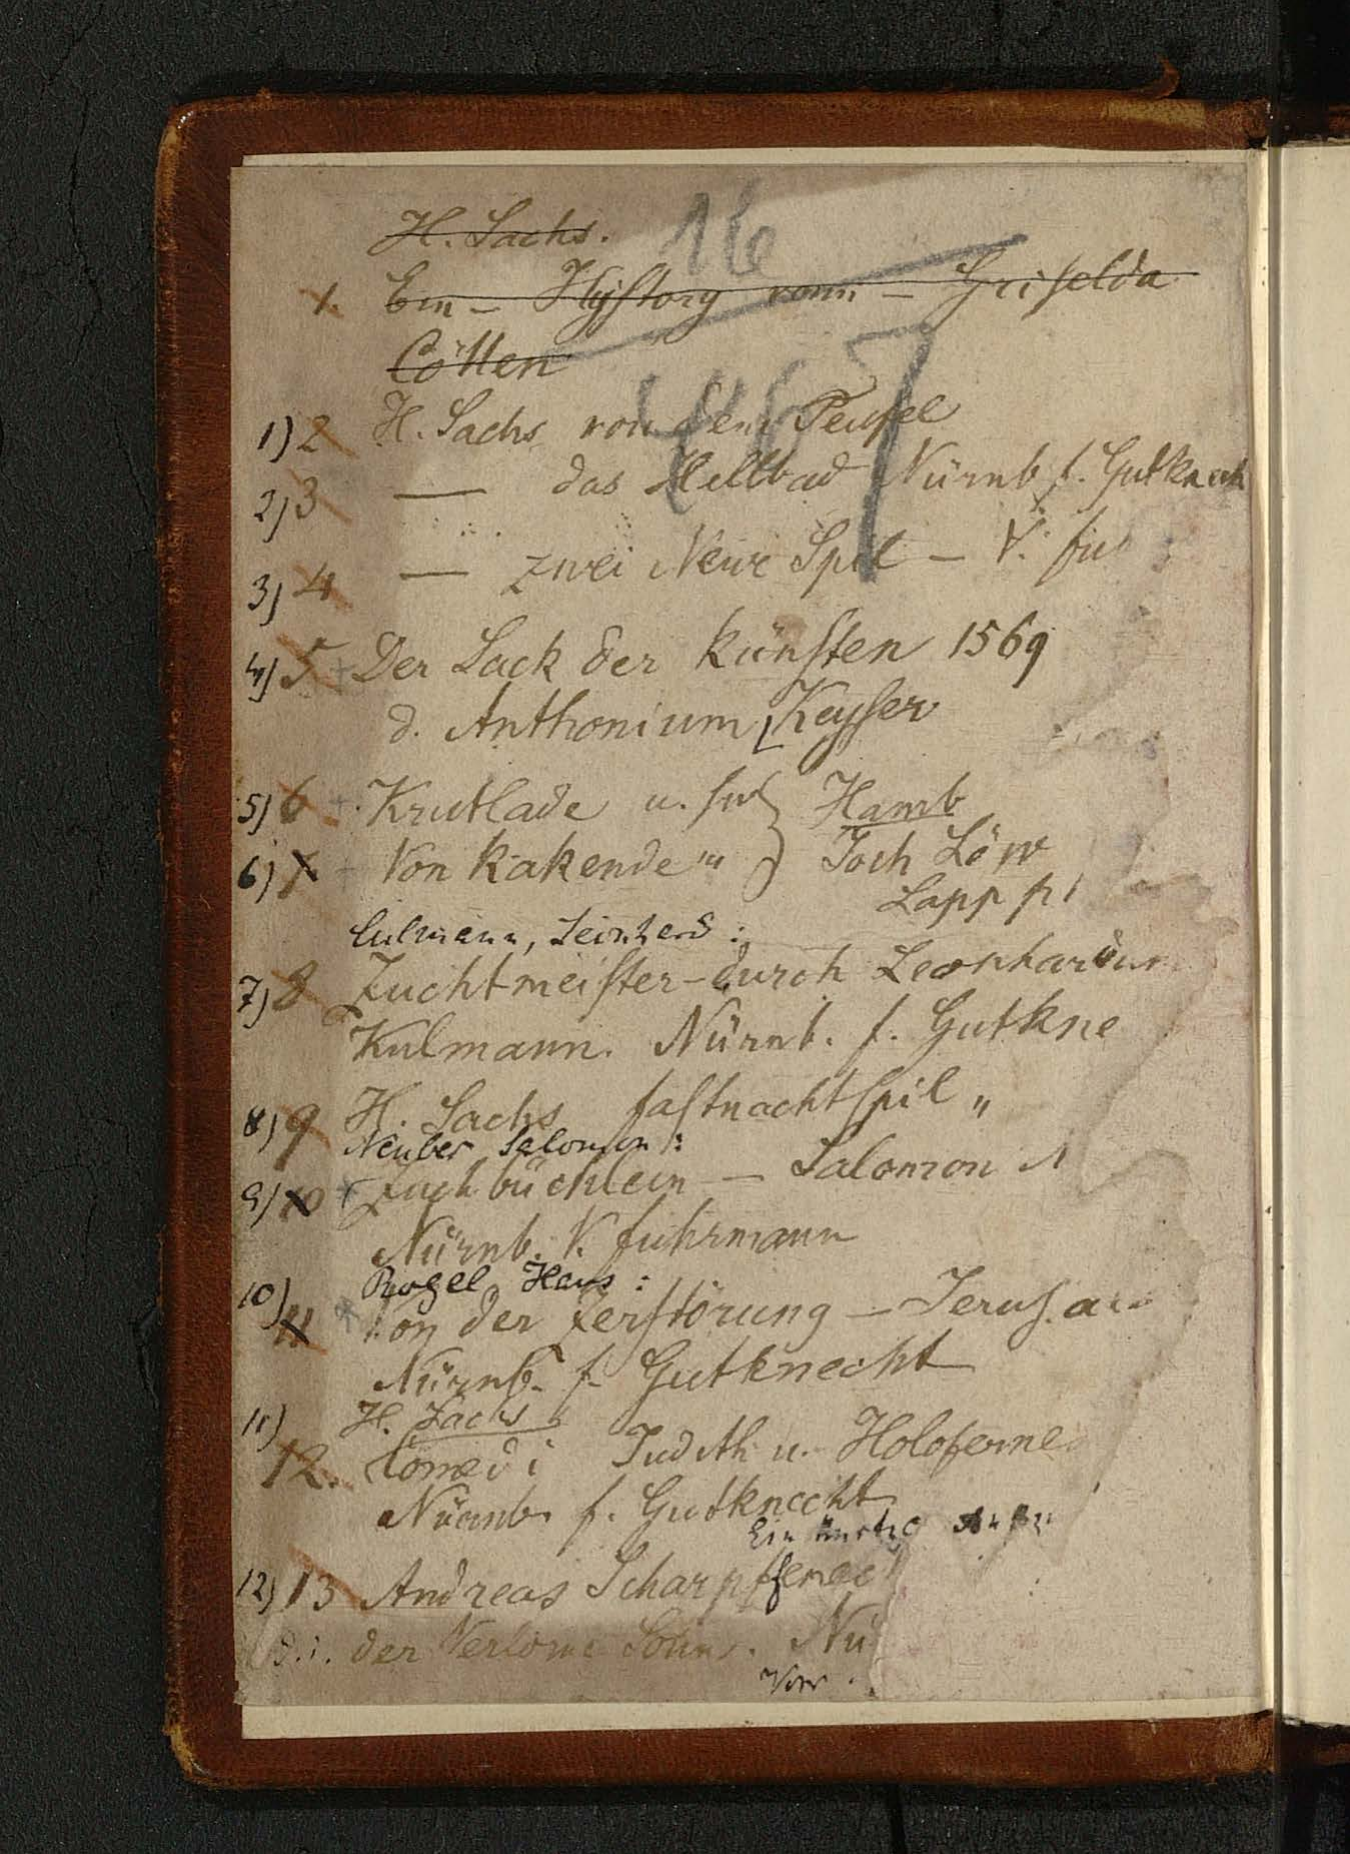 H. Sachs.
16
1. Ein – Hystory vonn – Griselda
Cöllen
167
1) 2 H. Sachs von dem Teufel
2) 3 — das Hellbad Nürnb f. Gutknech
3) 4 — zwei Newe Spil – V. fu
4) 5 Der Sack der Künsten 1569
d. Anthonium Keyser
5) 6 Krutlade u. Hamb
6) 7 Von kakende " Joch Löw
Lapp
Culmann, Leonhard:
7) 8 Zuchtmeister – durch Leonhardum
Kulmann. Nürnb. f. Gutkne
8) 9 H. Sachs fastnachtspil "
Neuber Salomon:
9) 10 Zuchbüchlein – Salomon N
Nürnb. V. fuhrmann
10) Hans:
11 Von der Zerstörung – Jerus.
Nürnb. f. Gutknecht
11) H. Sachs
12. Comedi Judith u. Holoferne
Nürnb. f. Gutknecht
Ein
12) 13 Andreas Scharpffenec
d. i. der Verlorne Sohn. Nü
Vor